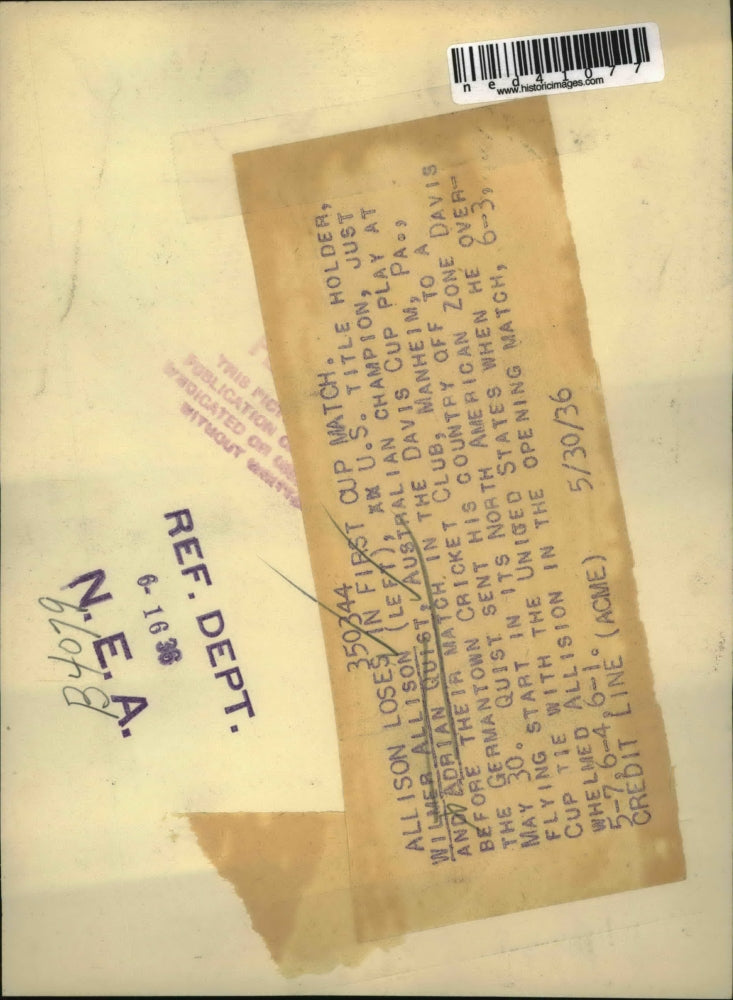 ned41077
www.historicimages.com
350344
ALLISON LOSES IN FIRST CUP MATCH.
WILMER ALLISON (LEFT), XX U.S. TITLE HOLDER,
AND ADRIAN QUIST, AUSTRALIAN CHAMPION, JUST
BEFORE THEIR MATCH IN THE DAVIS CUP PLAY AT
THE GERMANTOWN CRICKET CLUB, MANHEIM, PA.,
MAY 30. QUIST SENT HIS COUNTRY OFF TO A
FLYING START IN ITS NORTH AMERICAN ZONE DAVIS
CUP TIE WITH THE UNIGED STATES WHEN HE OVER-
WHELMED ALLISION IN THE OPENING MATCH, 6-3,
5-7, 6-4, 6-1.
CREDIT LINE (ACME) 5/30/36
THIS
PUBLICATION
WITHOUT
REF. DEPT.
6-16 36
N.E.A.